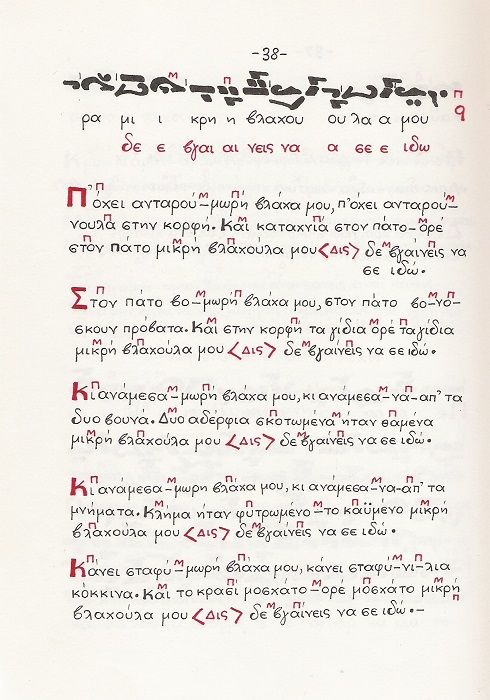 -38-
ρα μι ι κρη η βλαχου ου λα α μου
δε ε βγαι αι νεις να α σε ε ιδω
Π'όχει ανταρού-μωρή βλάχα μου, π'όχει ανταρού-
νουλα στην κορφή. Και καταχνιά στον πάτο-ορέ
στον πάτο μικρή βλαχούλα μου <Δις> δε βγαίνεις να
σε ιδώ.
Στον πάτο βο-μωρή βλάχα μου, στον πάτο βο-νο-
σκουν πρόβατα. Και στην κορφή τα γίδια ορέ τα γίδια
μικρή βλαχούλα μου <Δις> δε βγαίνεις να σε ιδώ.
Κι ανάμεσα-μωρή βλάχα μου, κι ανάμεσα-να-απ' τα
δυο βουνά. Δυο αδέρφια σκοτωμένα ήταν θαμένα
μικρή βλαχούλα μου <Δις> δε βγαίνεις να σε ιδώ.
Κι ανάμεσα-μωρη βλάχα μου, κι ανάμεσα-να-απ' τα
μνήματα. Κλήμα ήταν φυτρωμένο-το καϋμένο μικρή
βλαχούλα μου <Δις> δε βγαίνεις να σε ιδώ.
Κάνει σταφύ-μωρή βλάχα μου, κάνει σταφύ-νι-λια
κόκκινα. Και το κρασί μοσχάτο-ορέ μοσχάτο μικρή
βλαχούλα μου <Δις> δε βγαίνεις να σε ιδώ.-